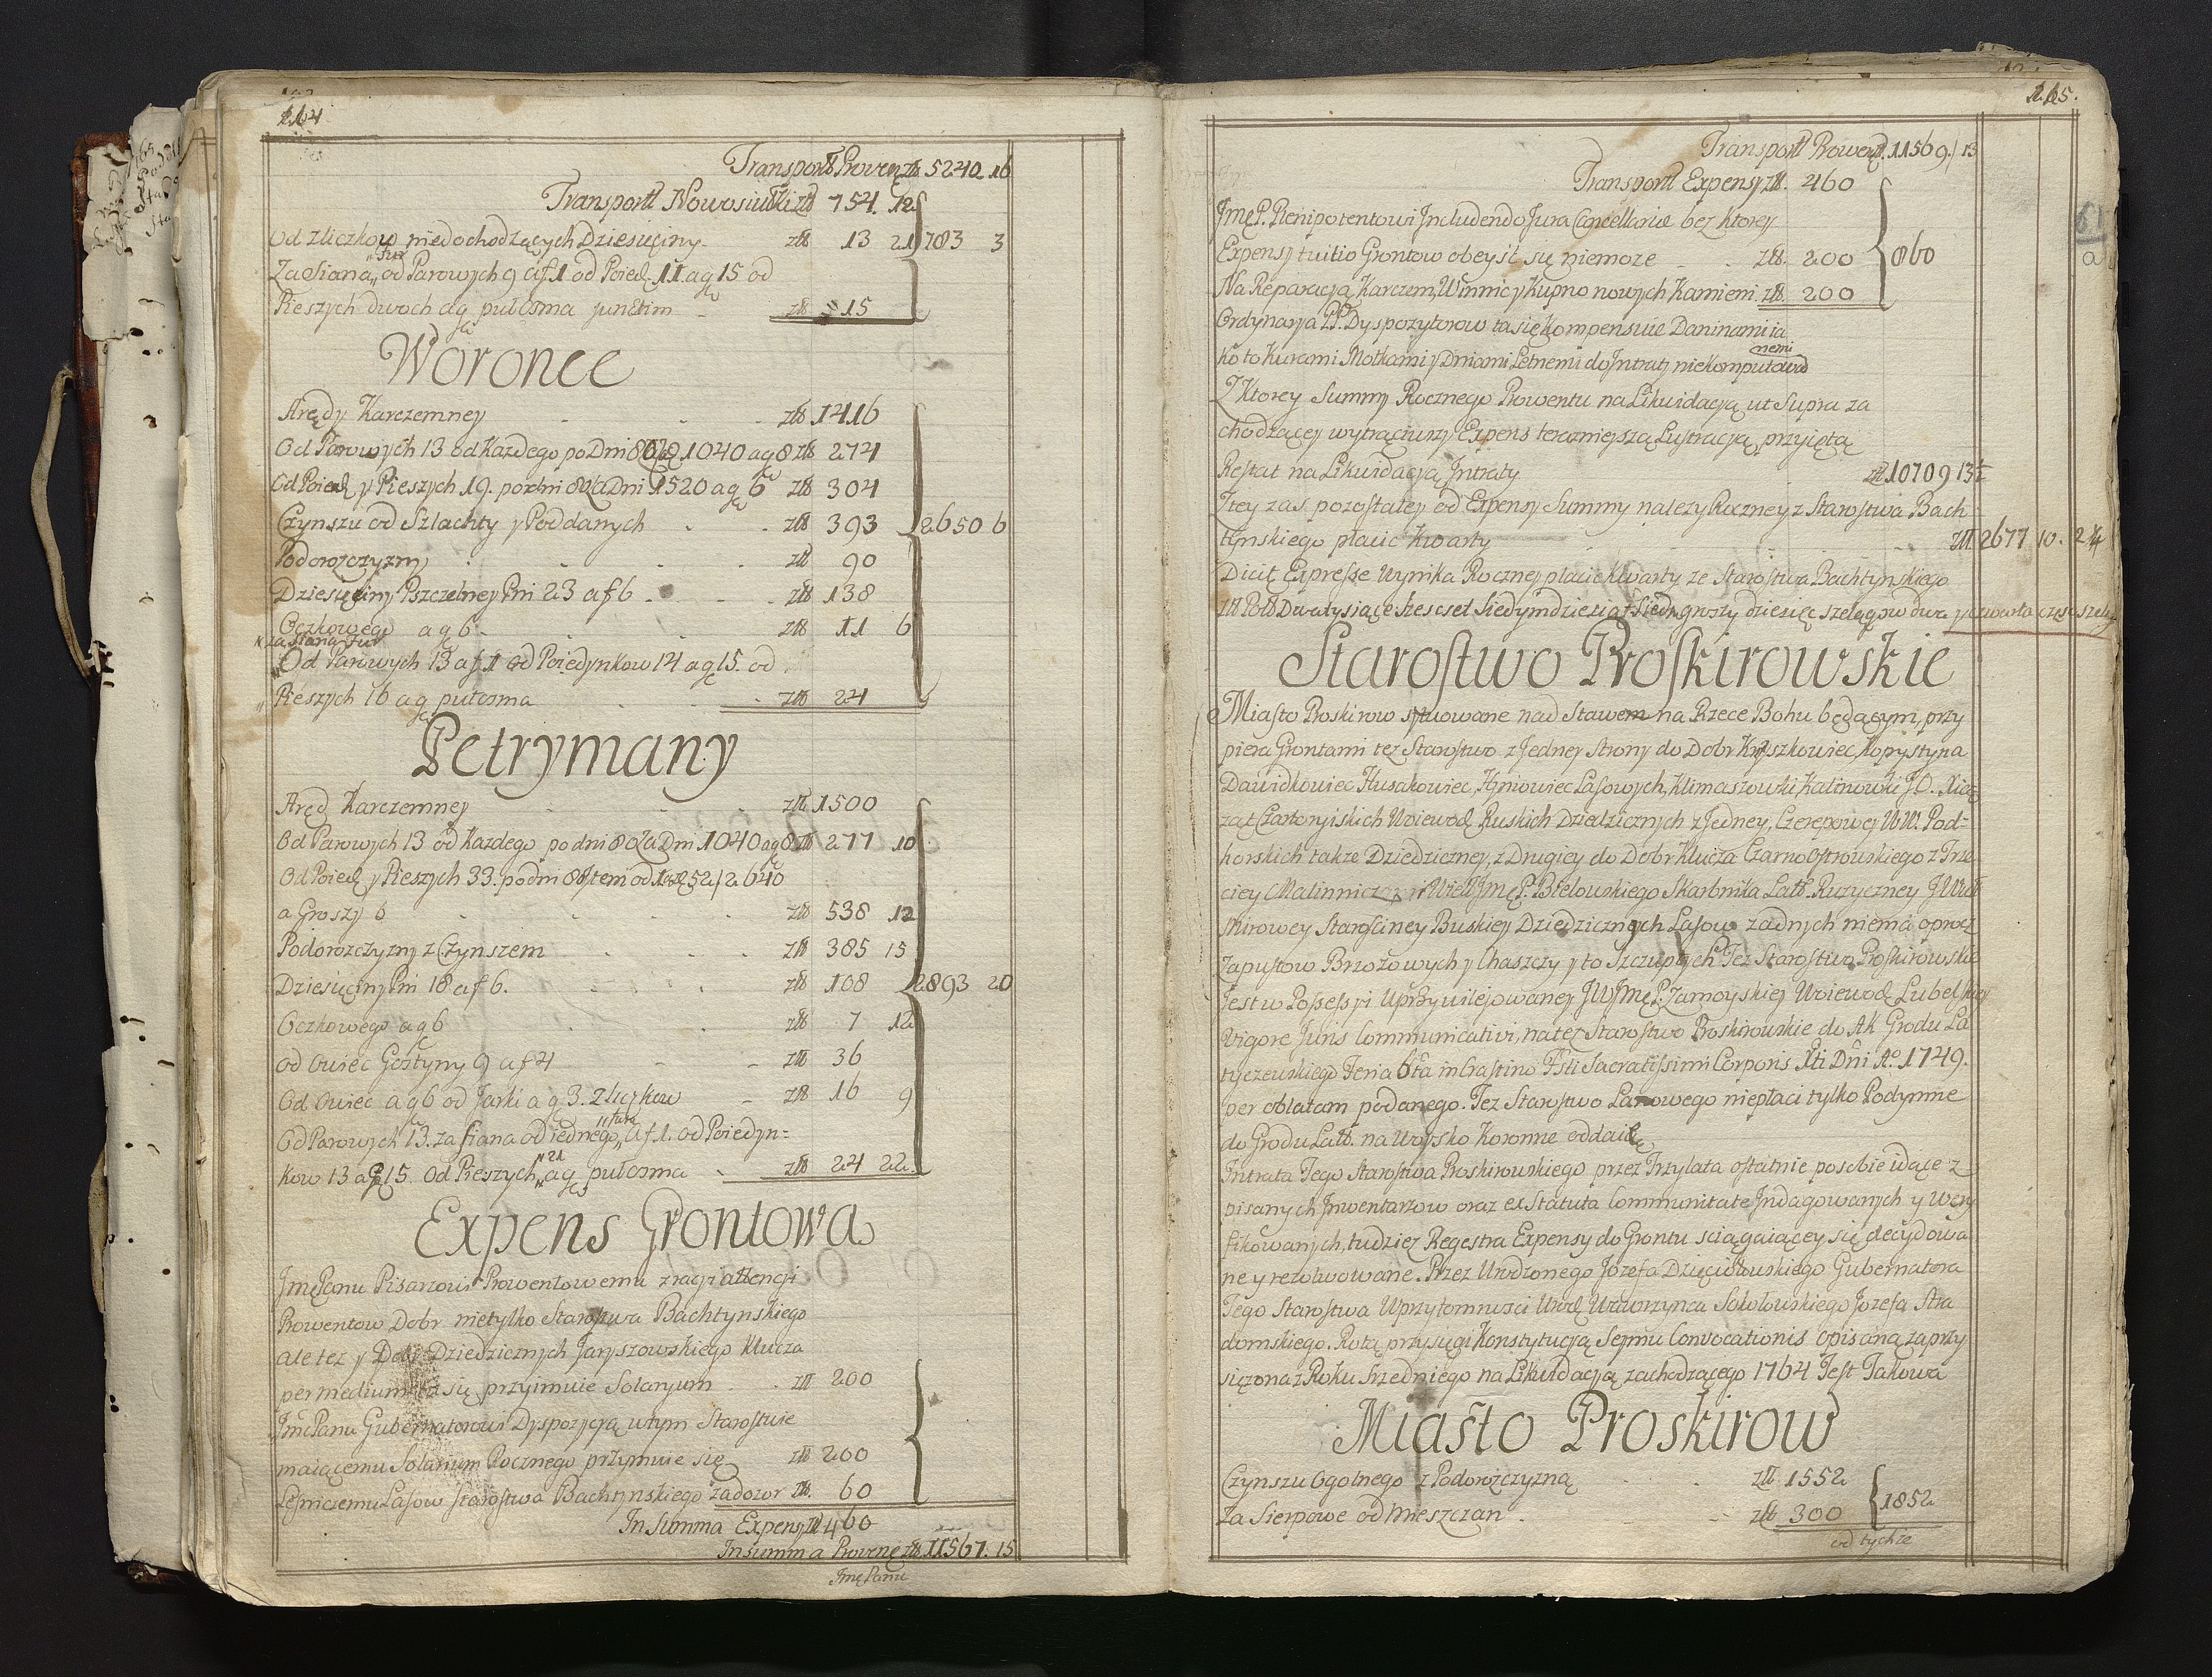 264
Transportt Prowen. złł 5240 16
Transportt Nowosiułki złł 754. 12
Od zliczkow niedochodzących Dziesięciny złł 13 21 783 3
Za Siana „fur od Parowych 9 a f. 1 od Poied. 11 a g 15 od
Pieszych dwoch a g pułosma junctim złł 15
Woronce
Arędy Karczemney złł 1416
Od Parowych 13 od Kazdego po Dni 80 1040 a g 8 złł 274
Od Poied. y Pieszych 19. po dni 80 Za Dni 1520 a g 6 złł 304
Czynszu od Szlachty y Poddanych złł 393 2650 6
Podorozczyzny złł 90
Dziesięciny Pszczelney Pni 23 a f 6 złł 138
Oczkowego a g 6 złł 11 6
za siana fur
Od Parowych 13 a f. 1 od Poiedynkow 14 a g 15. od
Pieszych 16 a g pułosma złł 24
Petrymany
Aręd. Karczemney złł 1500
Od Parowych 13 od Kazdego po dni 80 Za Dni 1040 a g 8 złł 277 10
Od Poied. y Pieszych 33. po dni 80 Item od 52 / 2640
a Groszy 6 złł 538 12
Podorozczyzny z Czynszem złł 385 15
Dziesięciny Pni 18 a f 6. złł 108 2893 20
Oczkowego a g 6 złł 7 12
od owiec Gostyny 9 a f 4 złł 36
Od Owiec a g 6 od Jarki a g 3. z liczkow złł 16 9
Od Parowych 13. za siana od iednego „fura a f 1. od Poiedyn=
kow 13 a g 15 Od Pieszych „21 a g pułosma złł 24 22.
Expens Grontowa
Jmę Panu Pisarzowi Prowentowemu z racyi attencyi
Prowentow Dobr nietylko Starostwa Bachtynskiego
ale tez y Dobr Dziedzicznych Jaryszowskiego Klucza
per medium się przyimuie Solaryum złł 200
Jmć Panu Gubernatorowi Dyspozycyą w tym Starostwie
maiącemu Solarium Rocznego przymuie się złł 200
Lesniczemu Lasow Starostwa Bachtynskiego za dozor złł. 60
In Summa Expensy złł 460
In summa Prowen. złł 11567. 15
Jmę Panu
265.
Transportt Prowen. 11569. / 13
Transportt Expensy złł. 460
Jmę P. Plenipotentowi Includendo Jura Cancellariæ bez Ktorey
Expensy tuitio Grontow obeyść się niemoze złł. 200 860
Na Reparacyą Karczem, Winnic y Kupno nowych Kamieni złł. 200
Ordynarya PP. Dyspozytorow ta się Kompensuie Daninami ia
ko to Kurami Motkami y Dniami Letnemi do Intraty niekomputowa
nemi
Z Ktorey Summy Rocznego Prowentu na Likwidacyą ut Supra za
chodzącey wytrąciwszy Expens teraznieyszą Lustracyą przyiętą
Restat na Likwidacyą Intraty złł 10709 13½
Z tey zas pozostałey od Expensy Summy nalezy Roczney z Starostwa Bach
tynskiego płacić Kwarty złł 2677 10. 2 ¼
Dicit Expresse Wynika Roczney płacić Kwarty ze Starostwa Bachtynskiego
złł Poll Dwa tysiące Szescset Siedymdziesiąt Siedm groszy dziesięć szelągow dwa y czwarta część szeląga
Starostwo Proskirowskie
Miasto Proskirow sytuowane nad Stawem na Rzece Bohu będącym, przy
piera Grontami tez Starostwo z Jedney Strony do Dobr Kryszkowiec, Kopystyna
Dawidkowiec Husakowiec, Hyniowiec Lasowych, Klimaszowki Kalinowki J.O. Xią
ząt Czartoryiskich Woiewod. Ruskich Dziedzicznych z Jedney, Czerepowey WW. Pod=
horskich takze Dziedziczney, z Drugiey do Dobr Klucza Czarno Ostrowskiego z Trze
ciey Malinnicz Wiel Jmę P. Bielowskiego Skarbnika Latt. Ruzyczney JW
mirowey Starosciney Buskiey Dziedzicznych Lasow zadnych niema oprocz
Zapustow Brzozowych y Chaszczy y to Szczupłych. Tez Starostwo Proskirowskie
Jest w Possessyi Uprzywilejowaney JW Jmę P. Zamoyskiey Woiewod. Lubelskiey
Vigore Juris Communicativi, na tez Starostwo Proskirowskie do Akt Grodu La
tyczewskiego Feria 6ta in Crastino Fsti Sacratissimi Corporis Xti Dni Ao. 1749.
per oblatam podanego. Tez Starostwo Lanowego niepłaci tylko Podymne
do Grodu Latt. na Woysko Koronne oddaie.
Intrata Tego Starostwa Proskirowskiego przez Trzy lata ostatnie po sobie idące z
pisanych Inwentarzow oraz ex Statuta Communitate Indagowanych y Wery
fikowanych, tudziez Regestra Expensy do Grontu sciągaiącey się decydowa
ne y rezolwowane. Przez Urodzonego Jozefa Dzięciołowskiego Gubernatora
Tego Starostwa w Przytomnosci Urod. Wawrzynca Sokołowskiego Jozefa Stra
domskiego. Rotą przysięgi Konstytucyą Seymu Convocationis opisaną zaprzy
siężona z Roku Srzedniego na Likwidacyą zachodzącego 1764 Jest Takowa
Miasto Proskirow
Czynszu Ogolnego z Podorozczyzną złł. 1552
1852
Za Sierpowe od Mieszczan złł 300
od tychze